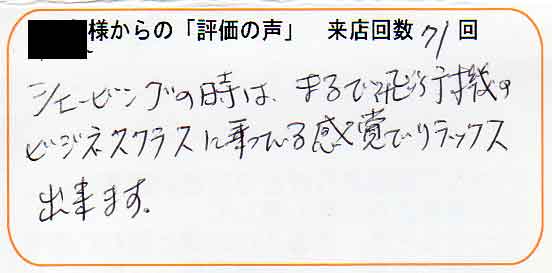 様からの「評価の声」 来店回数 71 回
シェービングの時は、まるで飛行機の
ビジネスクラスに乗っている感覚でリラックス
出来ます。